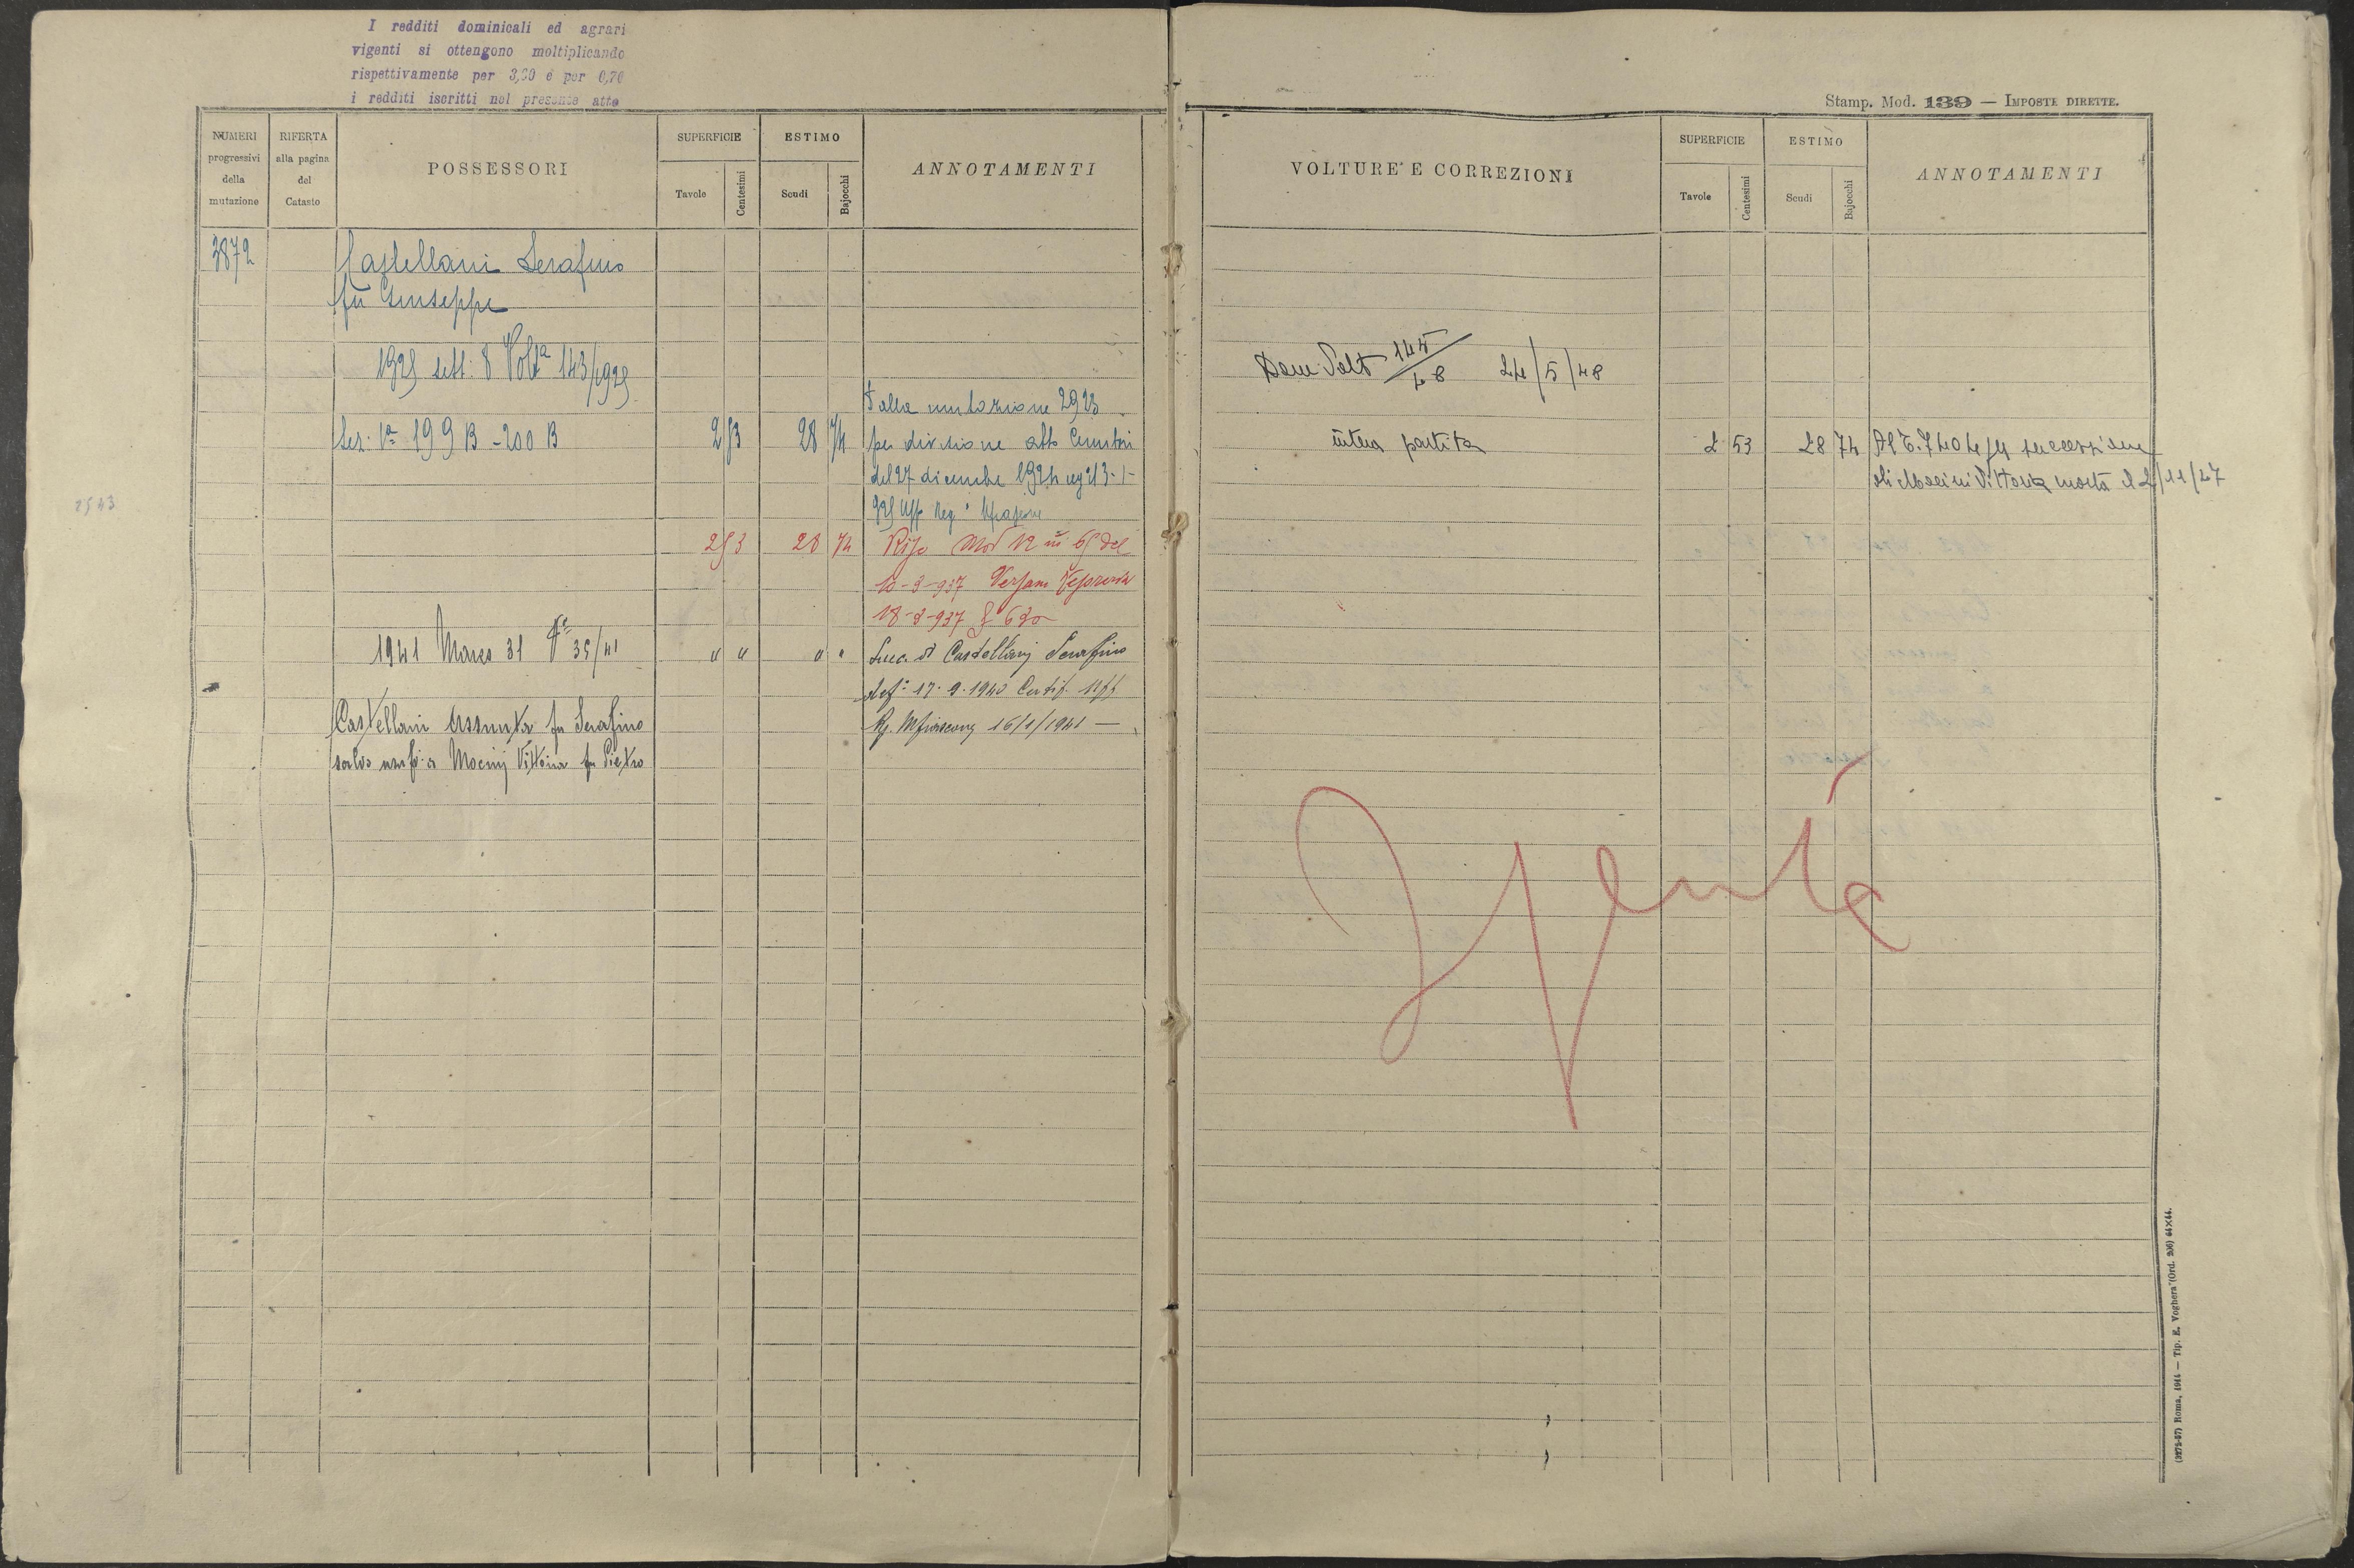 I redditi dominicali ed agrari
vigenti si ottengono moltiplicando
rispettivamente per 3,20 e per 0,70
i redditi iscritti nel presente atto
NUMERI
progressivi
della
mutazione
RIFERTA
alla pagina
del
Catasto
POSSESSORI
SUPERFICIE
Tavole
Centesimi
ESTIMO
Scudi
Bajocchi
ANNOTAMENTI
3872
Castellani Serafino
fu Giuseppe
1925 sett: 8 Volta 143/925
Dalla mutazione 2923
Sez. Va 199 B - 200 B 2 53 28 74 per divisione atto
del 27 dicembre 1924 reg 13-1-
925 Uff Reg
2543
2 53 28 74 Mod 12 n 65 del
10-3-937
18-3-937 £ 620
1941 Marzo 31 Va 35/41 " " " " Succ. di Castellani Serafino
17.9.1940 Certif. Uff
Rg. Mfiascone 16/1/1941 —
Castellani Assunta fu Serafino
salvo usuf. a Mocini Vittoria fu Pietro
Stamp. Mod. 139 — IMPOSTE DIRETTE.
VOLTURE E CORREZIONI
SUPERFICIE
Tavole
Centesimi
ESTIMO
Scudi
Bajocchi
ANNOTAMENTI
Dom. Volt 145/48 24/5/48
intera partita 2 53 28 74 Al T. 7404 per successione
di Mocini Vittoria morta il 2/11/47
Spenta
(3275-57) Roma, 1914 — Tip. E. Voghera (Ord. 206) 64×44.